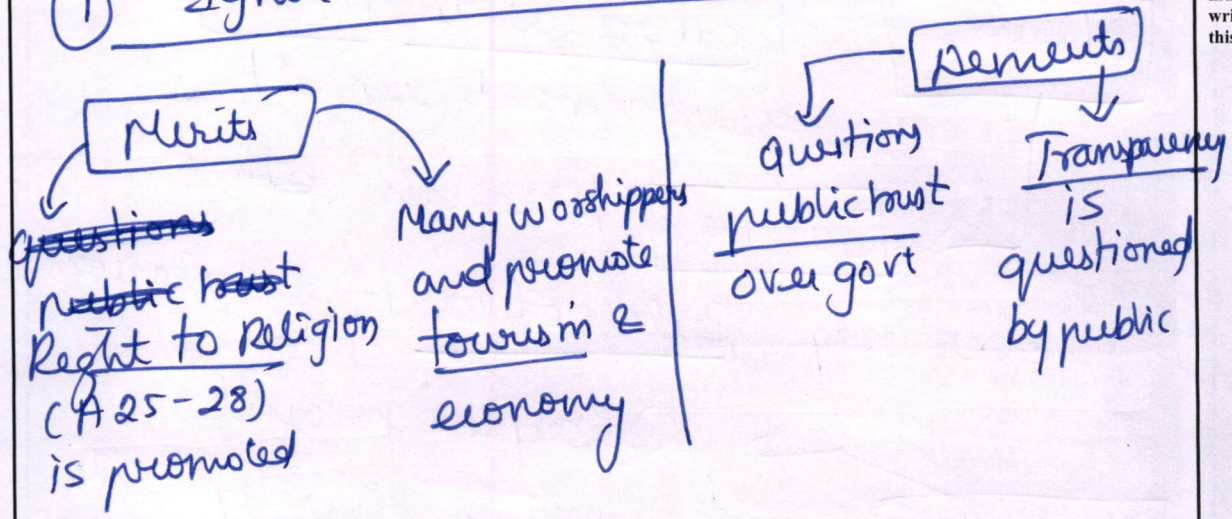 ①
Merits
Right to Religion
(A 25-28)
is promoted
Many worshippers
and promote
tourism &
economy
Demerits
Questions
public trust
over govt
Transparency
is
questioned
by public
wri
this